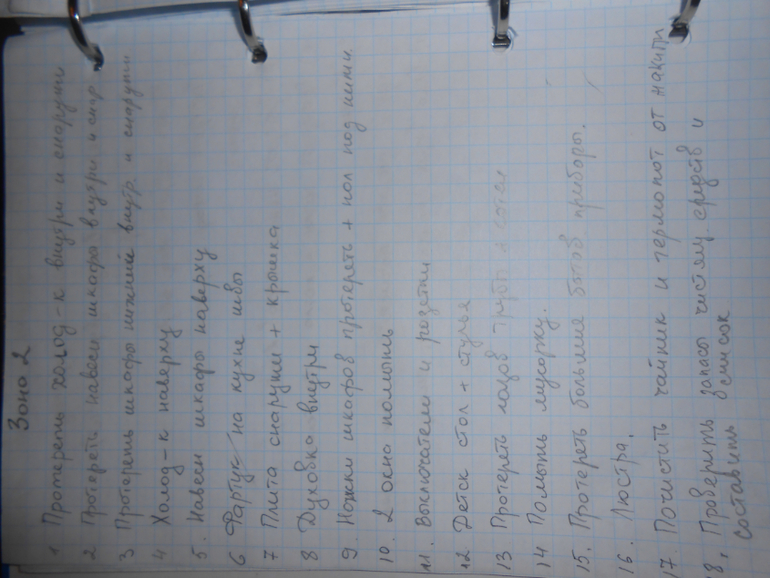 Зона 2
1 Протереть холод-к внутри и снаружи
2 Протереть навесн шкафа внутри и снар
3 Протереть шкафы нижние внутр. и снаружи
4 Холод-к наверху
5. Навесн шкафы наверху
6 Фартук на кухне швы
7 Плита снаружи + крышка
8 Духовка внутри
9. Ножки шкафов протереть + пол под ними.
10. 2 окна помыть
11. Выключатели и розетки
12 Детск стол + стулья
13 Протереть газов трубы и котел
14 Помыть мусорку.
15. Протереть большие бытов приборы.
16. Люстра.
17. Почистить чайник и термопот от накипи
8, Проверить запасы чистящ. средств и
составить список